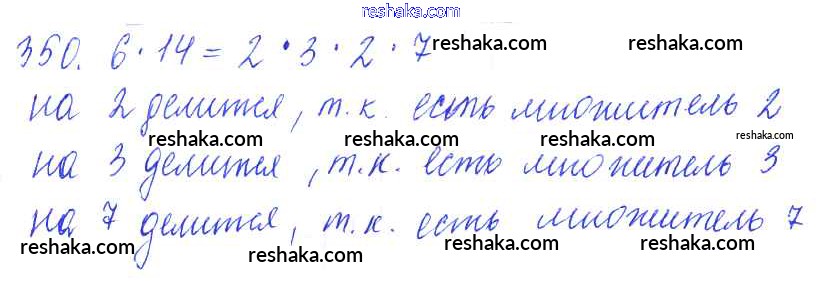 reshaka.com
350. 6 · 14 = 2 · 3 · 2 · 7
reshaka.com reshaka.com
на 2 делится, т.к. есть множитель 2
reshaka.com reshaka.com reshaka.com
на 3 делится, т.к. есть множитель 3
reshaka.com reshaka.com
на 7 делится, т.к. есть множитель 7
reshaka.com reshaka.com reshaka.com